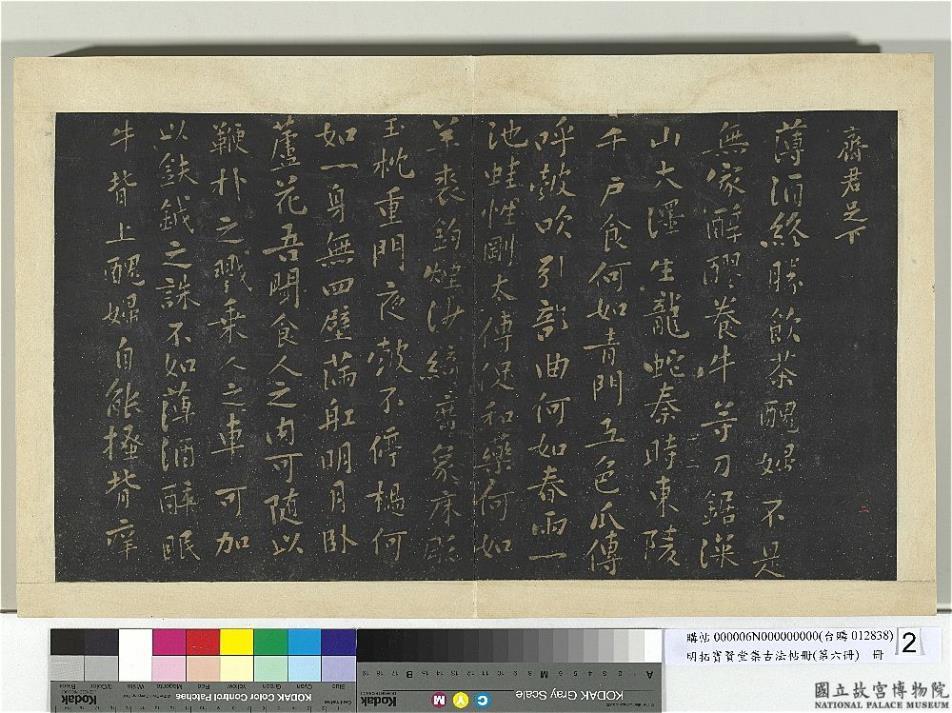 齋君足下
薄酒終勝飲茶醜婦不是
無家醇醪養牛等刀鋸深
山大澤生龍蛇秦時東陵
千戶食何如青門五色瓜傳
呼鼓吹引部曲何如春雨一
池蛙性剛太傅促和藥何如
羊裘釣煙沙綺窗象床彫
玉枕重門夜鼓不停撾何
如一身無四壁滿船明月臥
蘆花吾聞食人之肉可隨以
鞭朴之戮乘人之車可加
以鈇鉞之誅不如薄酒醉眠
牛背上醜婦自能搔背癢
KODAK Color Control Patches
Blue Cyan Green Yellow Red Magenta White 3/Color Black
Kodak
KODAK Gray Scale
Kodak
C Y M
A M B
購帖 000006N000000000(台購 012838)
明拓寶賢堂集古法帖冊(第六冊) 冊
2
國立故宮博物院
NATIONAL PALACE MUSEUM